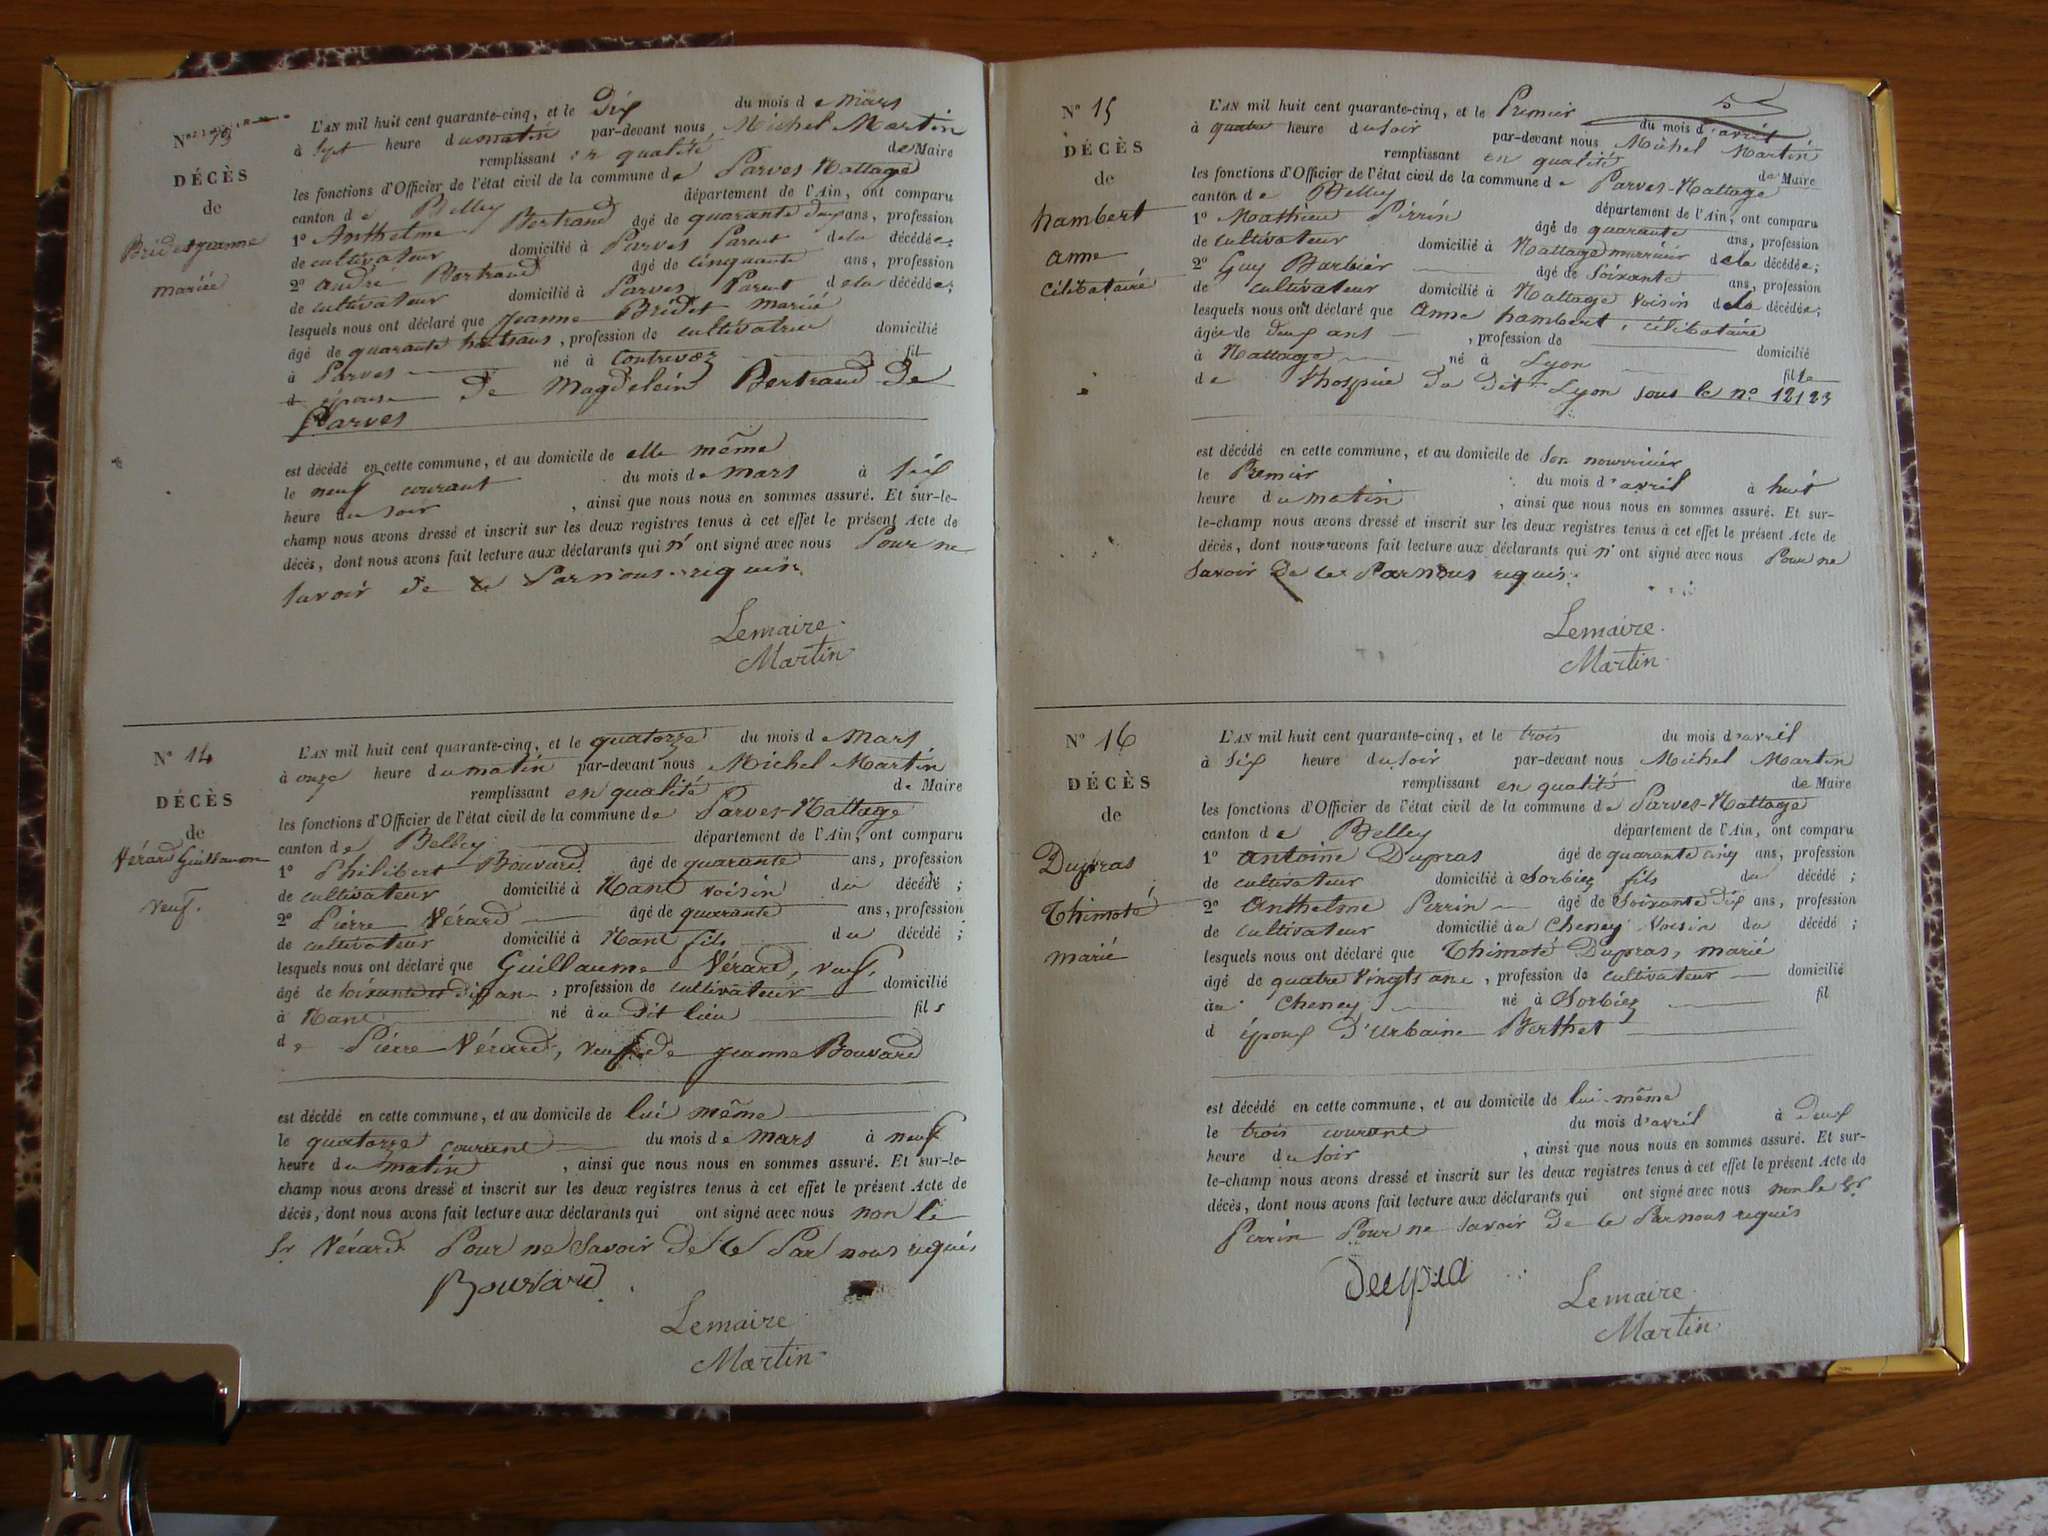 Nº 13
DÉCÈS
de
Bridet jeanne
mariée
L'AN mil huit cent quarante-cinq, et le Dix du mois de mars
à sept heure du matin par-devant nous Michel Martin
remplissant en qualité de Maire
les fonctions d'Officier de l'état civil de la commune de Parves Nattage
canton de Belley département de l'Ain, ont comparu
1º Anthelme Bertrand âgé de quarante deux ans, profession
de cultivateur domicilié à Parves Parent de la décédée;
2º andré Bertrand âgé de cinquante ans, profession
de cultivateur domicilié à Parves Parent de la décédée;
lesquels nous ont déclaré que jeanne Bridet mariée
âgé de quarante huit ans, profession de cultivatrice domicilié
à Parves né à Contrevoz fil
d épouse de Magdelein Bertrand de
Parves
est décédé en cette commune, et au domicile de elle même
le neuf courant du mois de mars à six
heure du soir, ainsi que nous nous en sommes assuré. Et sur-le-
champ nous avons dressé et inscrit sur les deux registres tenus à cet effet le présent Acte de
décès, dont nous avons fait lecture aux déclarants qui n' ont signé avec nous Pour ne
savoir de ce Par nous requis
Lemaire
Martin
Nº 14
DÉCÈS
de
Vérard Guillaume
veuf.
L'AN mil huit cent quarante-cinq, et le quatorze du mois de Mars
à onze heure du matin par-devant nous Michel Martin
remplissant en qualité de Maire
les fonctions d'Officier de l'état civil de la commune de Parves-Nattage
canton de Belley département de l'Ain, ont comparu
1º Philibert Bouvard âgé de quarante ans, profession
de cultivateur domicilié à Nant voisin du décédé;
2º Pierre Vérard âgé de quarante ans, profession
de cultivateur domicilié à Nant fils du décédé;
lesquels nous ont déclaré que Guillaume Vérard, veuf,
âgé de soixante et dix an, profession de cultivateur domicilié
à Nant né au dit lieu fils
de Pierre Vérard, veuf de jeanne Bouvard
est décédé en cette commune, et au domicile de lui même
le quatorze courant du mois de mars à neuf
heure du matin, ainsi que nous nous en sommes assuré. Et sur-le-
champ nous avons dressé et inscrit sur les deux registres tenus à cet effet le présent Acte de
décès, dont nous avons fait lecture aux déclarants qui ont signé avec nous non le
Sr Vérard Pour ne Savoir de ce Par nous requis
Bouvard
Lemaire
Martin
5
Nº 15
DÉCÈS
de
hambert
anne
célibataire
L'AN mil huit cent quarante-cinq, et le Premier du mois d'avril
à quatre heure du soir par-devant nous Michel Martin
remplissant en qualité de Maire
les fonctions d'Officier de l'état civil de la commune de Parves-Nattage
canton de Belley département de l'Ain, ont comparu
1º Mathieu Pirrin âgé de quarante ans, profession
de cultivateur domicilié à Nattage de la décédée;
2º Guy Barbier âgé de soixante ans, profession
de cultivateur domicilié à Nattage voisin de la décédée;
lesquels nous ont déclaré que Anne hambert, célibataire
âgée de deux ans, profession de domicilié
à Nattage né à Lyon fille
de l'hospice du dit Lyon sous le nº 12123
est décédé en cette commune, et au domicile de son nourricier
le Premier du mois d'avril à huit
heure du matin, ainsi que nous nous en sommes assuré. Et sur-
le-champ nous avons dressé et inscrit sur les deux registres tenus à cet effet le présent Acte de
décès, dont nous avons fait lecture aux déclarants qui n' ont signé avec nous Pour ne
savoir de ce Par nous requis.
Lemaire
Martin
Nº 16
DÉCÈS
de
Dupras
Thimoté
marié
L'AN mil huit cent quarante-cinq, et le trois du mois d'avril
à six heure du soir par-devant nous Michel Martin
remplissant en qualité de Maire
les fonctions d'Officier de l'état civil de la commune de Parves-Nattage
canton de Belley département de l'Ain, ont comparu
1º Antoine Dupras âgé de quarante cinq ans, profession
de cultivateur domicilié à Sorbiez fils du décédé;
2º Anthelme Perrin âgé de soixante dix ans, profession
de cultivateur domicilié au Cheney Voisin du décédé;
lesquels nous ont déclaré que Thimoté Dupras, marié
âgé de quatre vingts ans, profession de cultivateur domicilié
au Cheney né à Sorbiez fil
d époux d'Urbaine Berthet
est décédé en cette commune, et au domicile de lui-même
le trois courant du mois d'avril à deux
heure du soir, ainsi que nous nous en sommes assuré. Et sur-
le-champ nous avons dressé et inscrit sur les deux registres tenus à cet effet le présent Acte de
décès, dont nous avons fait lecture aux déclarants qui ont signé avec nous non le Sr
Perrin Pour ne savoir de ce Par nous requis
Lemaire
Martin